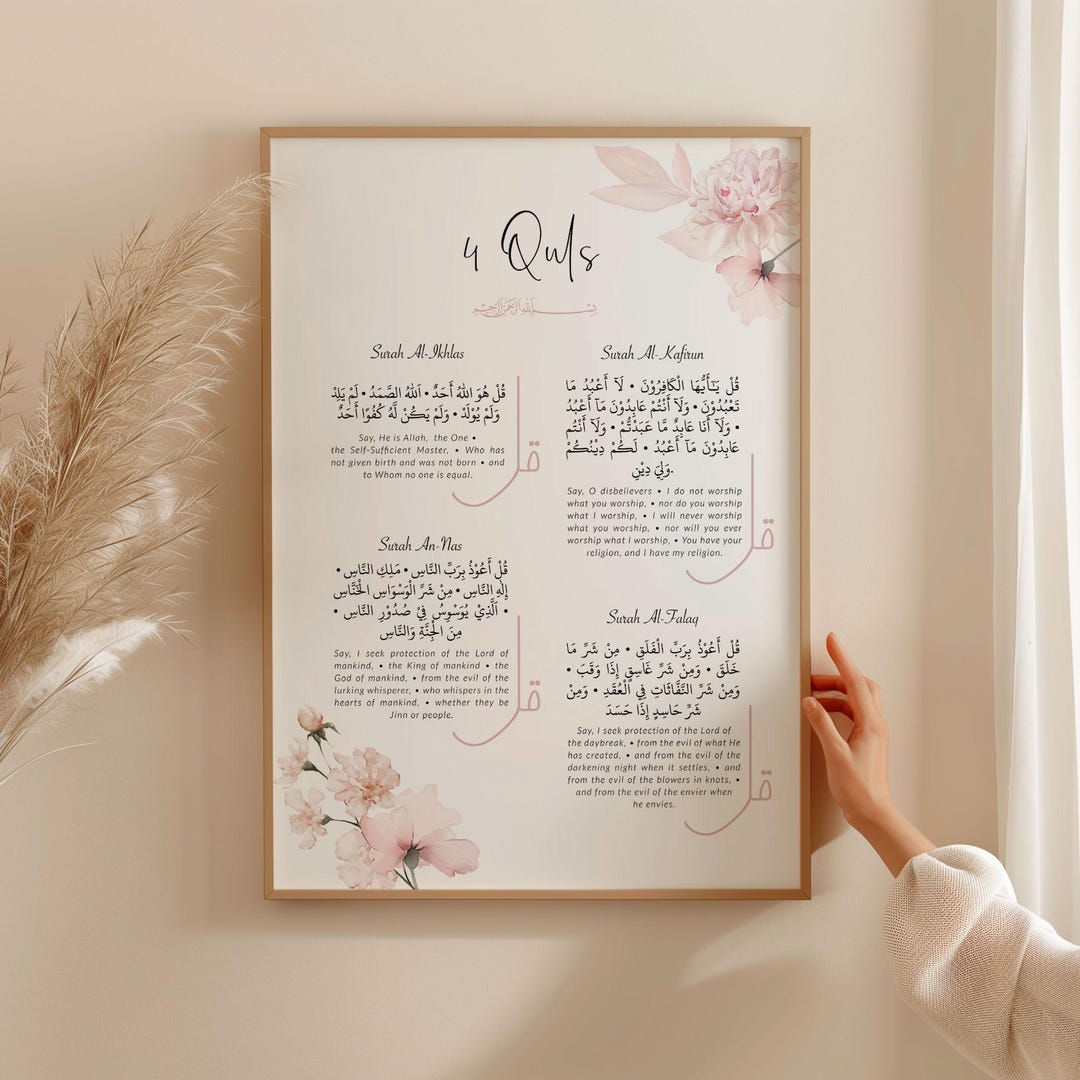 4 Quls
بِسْمِ اللهِ الرَّحْمٰنِ الرَّحِيْمِ
Surah Al-Ikhlas
قُلْ هُوَ اللهُ أَحَدٌ • اَللهُ الصَّمَدُ • لَمْ يَلِدْ
وَلَمْ يُوْلَدْ • وَلَمْ يَكُنْ لَّهُ كُفُوًا أَحَدٌ
Say, He is Allah, the One •
the Self-Sufficient Master, • Who has
not given birth and was not born • and
to Whom no one is equal.
قل
Surah An-Nas
قُلْ أَعُوْذُ بِرَبِّ النَّاسِ • مَلِكِ النَّاسِ •
إِلٰهِ النَّاسِ • مِنْ شَرِّ الْوَسْوَاسِ الْخَنَّاسِ
• اَلَّذِيْ يُوَسْوِسُ فِيْ صُدُوْرِ النَّاسِ •
مِنَ الْجِنَّةِ وَالنَّاسِ
Say, I seek protection of the Lord of
mankind, • the King of mankind • the
God of mankind, • from the evil of the
lurking whisperer, • who whispers in the
hearts of mankind, • whether they be
Jinn or people.
قل
Surah Al-Kafirun
قُلْ يَـٰٓأَيُّهَا الْكَافِرُوْنَ • لَآ أَعْبُدُ مَا
تَعْبُدُوْنَ • وَلَآ أَنْتُمْ عَابِدُوْنَ مَآ أَعْبُدُ
• وَلَآ أَنَا عَابِدٌ مَّا عَبَدْتُّمْ • وَلَآ أَنْتُم
عَابِدُوْنَ مَآ أَعْبُدُ • لَكُمْ دِيْنُكُمْ
وَلِيَ دِيْنِ.
Say, O disbelievers • I do not worship
what you worship, • nor do you worship
what I worship, • I will never worship
what you worship, • nor will you ever
worship what I worship, • You have your
religion, and I have my religion.
قل
Surah Al-Falaq
قُلْ أَعُوْذُ بِرَبِّ الْفَلَقِ • مِنْ شَرِّ مَا
خَلَقَ • وَمِنْ شَرِّ غَاسِقٍ إِذَا وَقَبَ •
وَمِنْ شَرِّ النَّفَّاثَاتِ فِي الْعُقَدِ • وَمِنْ
شَرِّ حَاسِدٍ إِذَا حَسَدَ
Say, I seek protection of the Lord of
the daybreak, • from the evil of what He
has created, • and from the evil of the
darkening night when it settles, • and
from the evil of the blowers in knots, •
and from the evil of the envier when
he envies.
قل